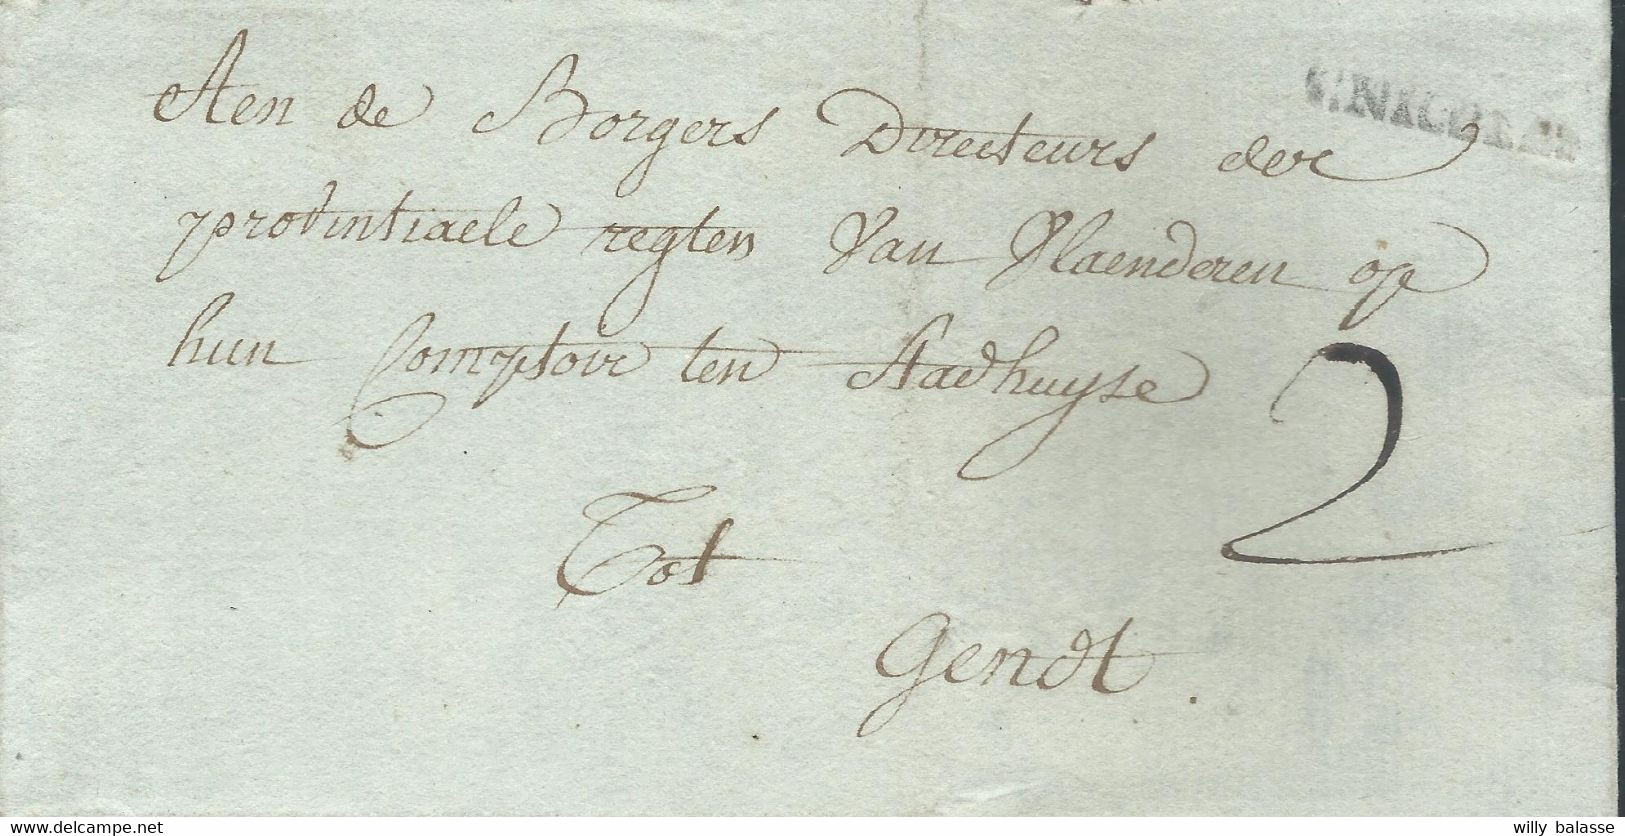 Aen de Borgers Directeurs der
provintiaele regten Van Vlaenderen op
hun Comptoir ten stadhuyse
2
Tot
Gendt.
www.delcampe.net
willy balasse